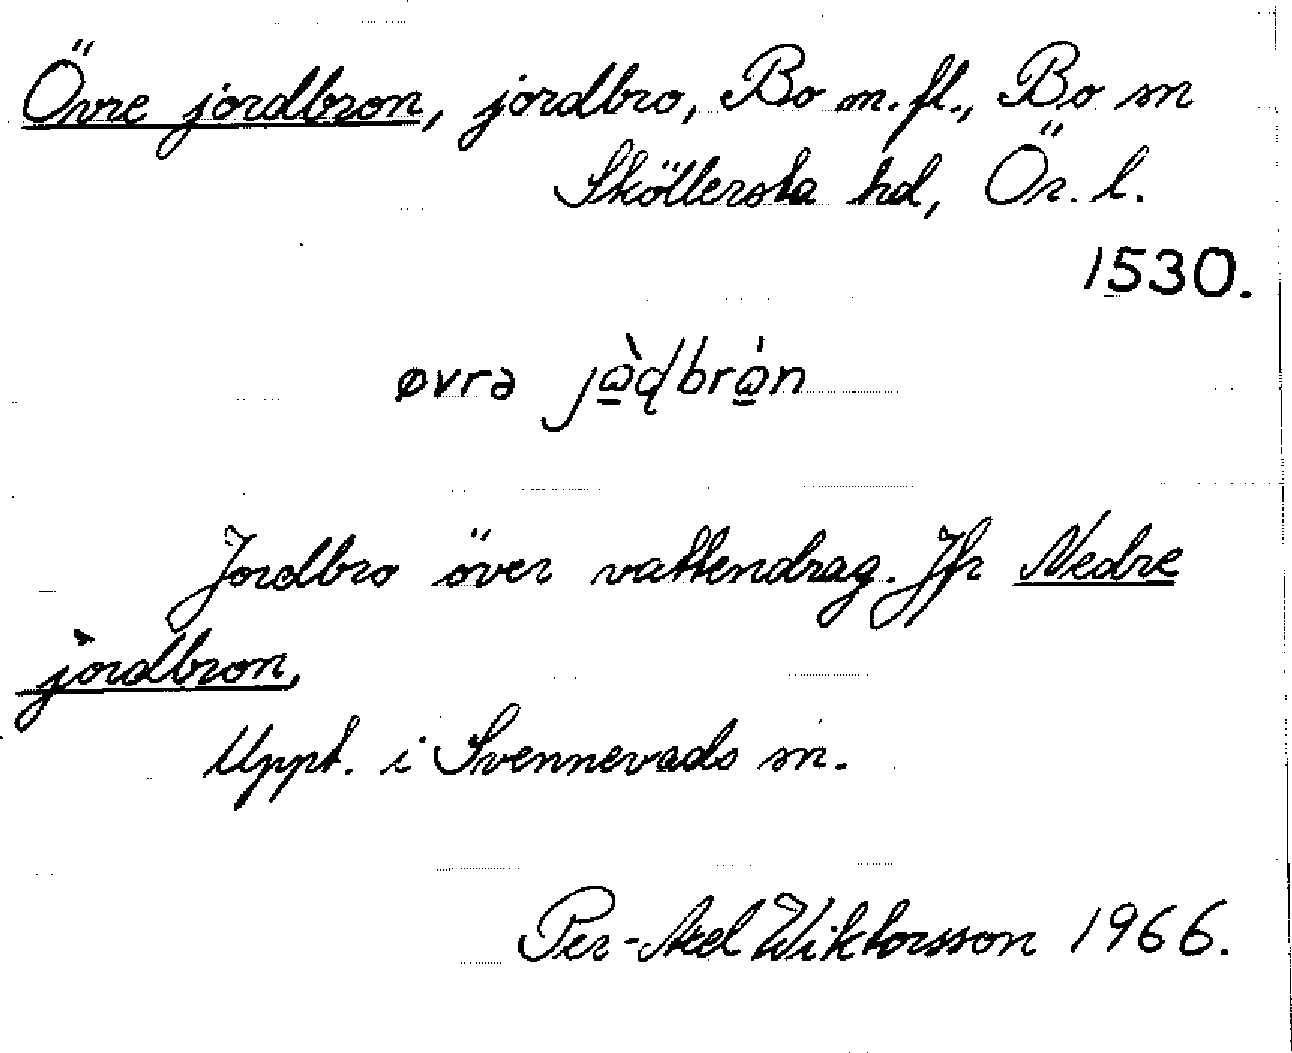 Övre jordbron, jordbro, Bo m.fl., Bo sn
Sköllersta hd, Ör. l.
1530.
øvrə jò̲ɖbro̲̍n
Jordbro över vattendrag. Jfr Nedre
jordbron.
Uppt. i Svennevads sn.
Per-Axel Wiktorsson 1966.